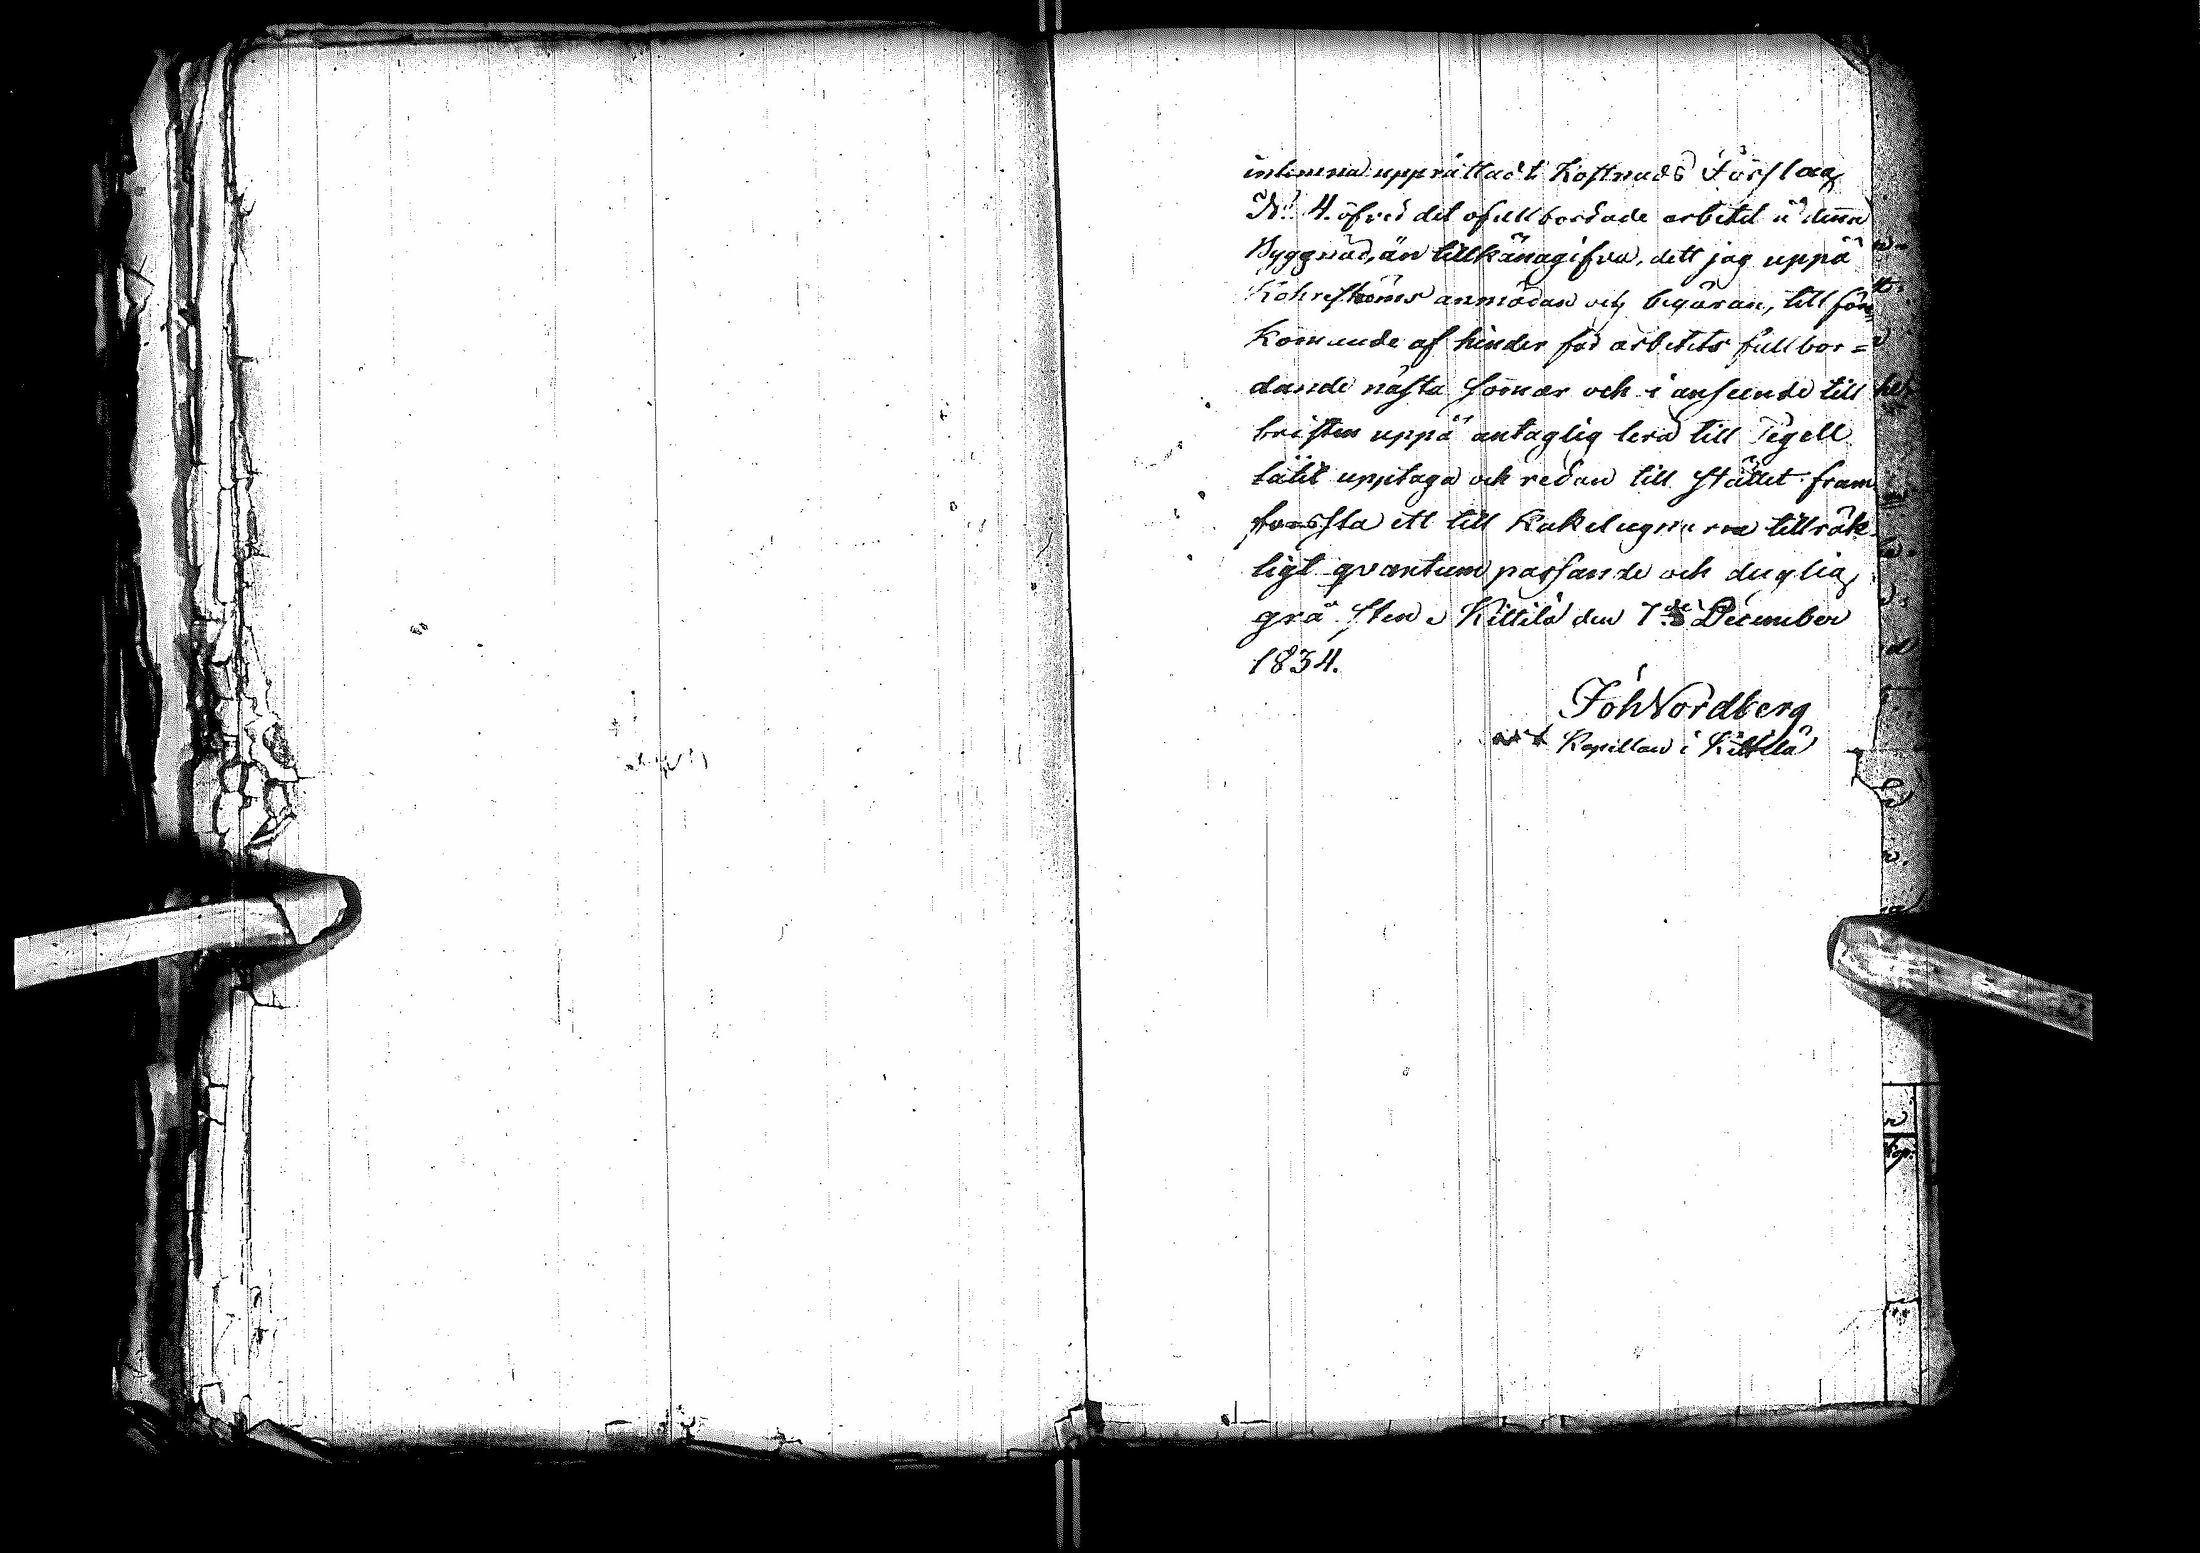 intemna upprättadt Kostnads Förslag
N.o 4. öfver det ofullbordade arbetet å denna
Byggnad, än tillkännagifva, dett jag uppå
anmodan och begäran, till före
kommande af hinder för arbetets fullbor=
dande nästa sommar och i anseende till
bristen uppå antaglig lera till Tegell
låtit upptaga och redan till stället fram
forsla ett till Kakelugnarna tillräk
ligt qvantum passande och duglig
grå sten. Kittilä den 7de December
1834.
Joh Nordberg
Kapellan i Kittilä